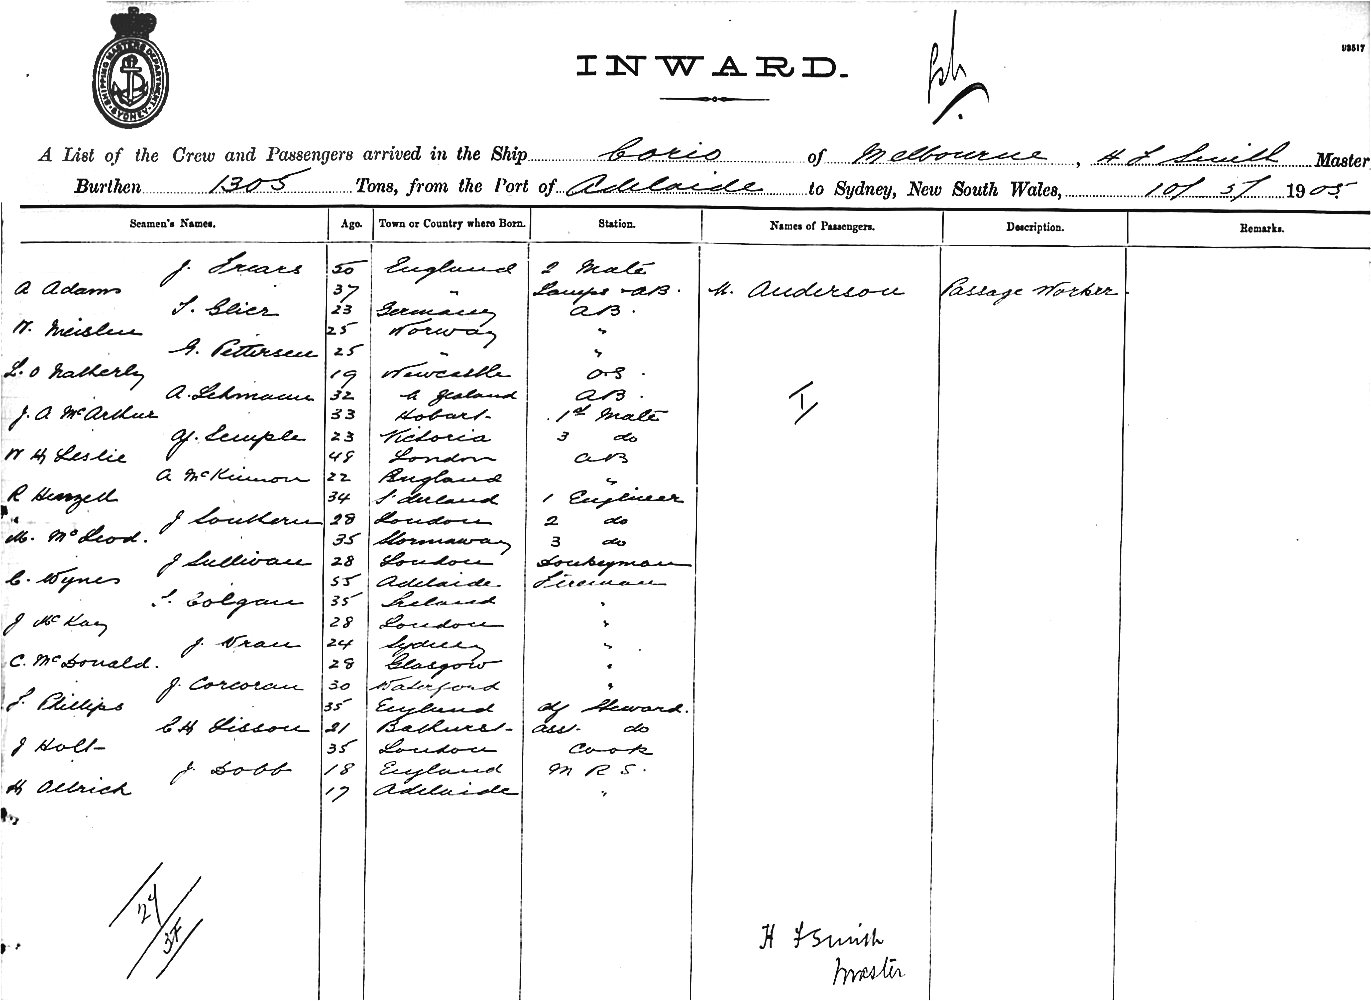 SHIPPING MASTER'S DEPARTMENT
SYDNEY
INWARD.
A List of the Crew and Passengers arrived in the Ship Corio of Melbourne, H F Smith Master
Burthen 1305 Tons, from the Port of Adelaide to Sydney, New South Wales, 10/ 5/ 1905
Seamen's Names. Age. Town or Country where Born. Station. Names of Passengers. Description. Remarks.
J. 50 England 2 Mate
A Adams 37 " Lamps AB. M. Anderson Passage Worker.
23 Germany AB.
W. 25 Norway "
G. Pettersen 25 " "
L. O Natherly 19 Newcastle OS.
A. Lehmann 32 N Zealand AB.
J. A McArthur 33 Hobart 1st Mate
Semple 23 Victoria 3 do
W H Leslie 49 London AB
A McKinnon 22 England "
R 34 S'derland 1 Engineer
J Southern 28 London 2 do
M. McLeod. 35 Stornaway 3 do
J Sullivan 28 London Donkeyman
C. Wynes 55 Adelaide Fireman
Colgan 35 Ireland "
J McKay 28 London "
J. 24 Sydney "
C. McDonald. 28 Glasgow "
J. Corcoran 30 Waterford "
Phillips 35 England Steward.
C H Sisson 21 Bathurst asst. do
J Holt 35 London Cook
J. Dobb 18 England M R S.
H Ollrich 17 Adelaide "
H F Smith
Master